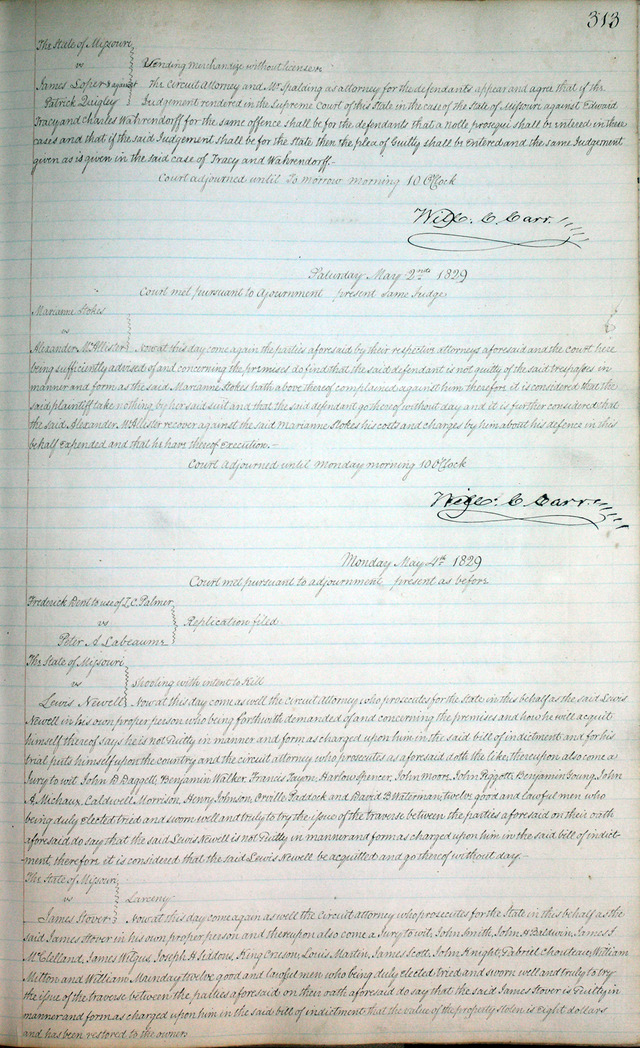 313
The State of Missouri
vs
Vending merchandize without license
James Loper & against The Circuit Attorney and Mr Spalding as attorney for the defendants appear and agree that if the
Patrick Quigley Judgement rendered in the Supreme Court of this State in the case of the State of Missouri against Edward
Tracy and Charles Wahrendorff for the same offence shall be for the defendants that a nolle prosequi shall be entered in these
cases and that if the said Judgement shall be for the State then the plea of Guilty shall be Entered and the same Judgement
given as is given in the said case of Tracy and Wahrendorff—
Court adjourned until To morrow morning 10 OClock
Will. C. Carr
Saturday May 2nd 1829
Court met pursuant to Adjournment present same Judge
Marianne Stokes
vs
Alexander McAllister Now at this day come again the parties aforesaid by their respective attorneys aforesaid and the court here
being sufficiently advised of and concerning the premises do find that the said defendant is not guilty of the said trespass in
manner and form as the said Marianne Stokes hath above thereof complained against him therefore it is considered that the
said plaintiff take nothing by her said suit and that the said defendant go thereof without day and it is further considered that
the said Alexander McAllister recover against the said Marianne Stokes his costs and charges by him about his defence in this
behalf Expended and that he have thereof Execution.—
Court adjourned until Monday morning 10 OClock
Will. C. Carr
Monday May 4th 1829
Court met pursuant to adjournment present as before
Frederick Dent to use of T. C. Palmer
vs
Replication filed
Peter A Labeaume
The State of Missouri
vs
Shooling with intent to Kill
Lewis Newell Now at this day come as well the Circuit attorney who prosecutes for the State in this behalf as the said Lewis
Newell in his own proper person who being forthwith demanded of and concerning the premises and how he will acquit
himself thereof says he is not Guilty in manner and form as charged upon him in the said bill of indictment and for his
trial puts himself upon the country and the circuit attorney who prosecutes as aforesaid doth the like, thereupon also come a
Jury to wit John D. Daggett, Benjamin Walker, Francis Guyon, Harlow Spencer, John Moore, John Piggott, Benjamin Going, John
A. Michaux, Caldwell Morrison, Henry Johnson, Orville Paddock and David B. Waterman, twelve good and lawful men who
being duly Elected tried and sworn well and truly to try the issue of the traverse between the parties aforesaid on their oath
aforesaid do say that the said Lewis Newell is not Guilty in manner and form as charged upon him in the said bill of indict-
ment, therefore it is considered that the said Lewis Newell be acquitted and go thereof without day—
The State of Missouri
vs
Larceny
James Stover Now at this day come again as well the Circuit Attorney who prosecutes for the State in this behalf as the
said James Stover in his own proper person and thereupon also come a Jury to wit, John Smith, John H Baldwin, James J
McClelland, James Wilgus, Joseph H Siddons, King Creson, Louis Martin, James Scott, John Knight, Gabriel Chouteau, William
Milton and William Munday twelve good and lawful men who being duly elected tried and sworn well and truly to try
the issue of the traverse between the parties aforesaid on their oath aforesaid do say that the said James Stover is Guilty in
manner and form as charged upon him in the said bill of indictment that the value of the property stolen is Eight dollars
and has been restored to the owners